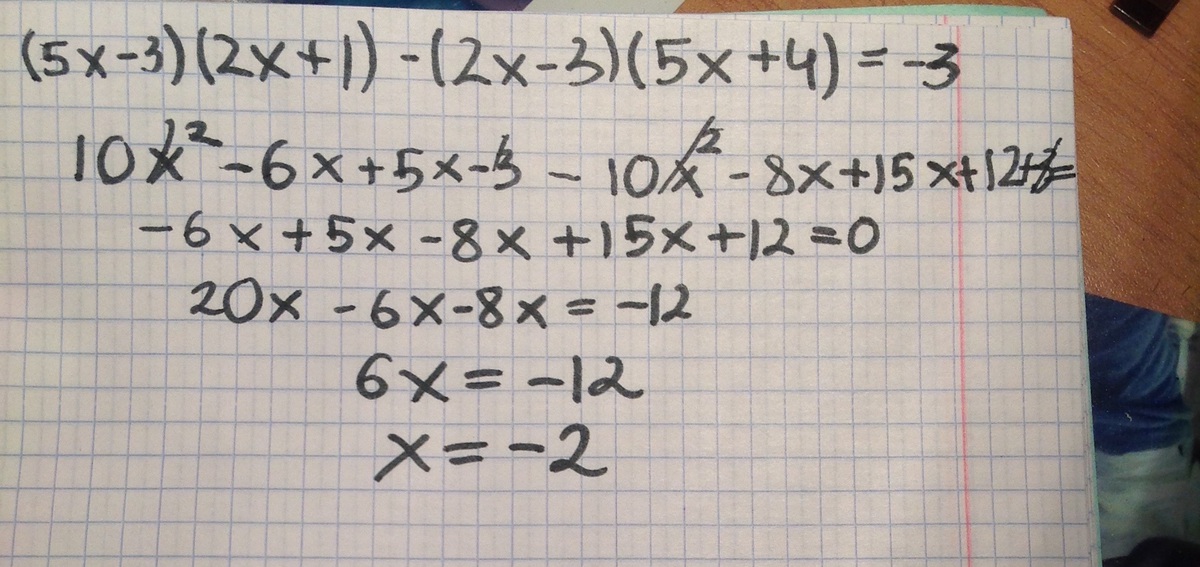 (5x-3)(2x+1)-(2x-3)(5x+4)=-3
10x²-6x+5x-3-10x²-8x+15x+12+3=
-6x+5x-8x+15x+12=0
20x-6x-8x=-12
6x=-12
x=-2